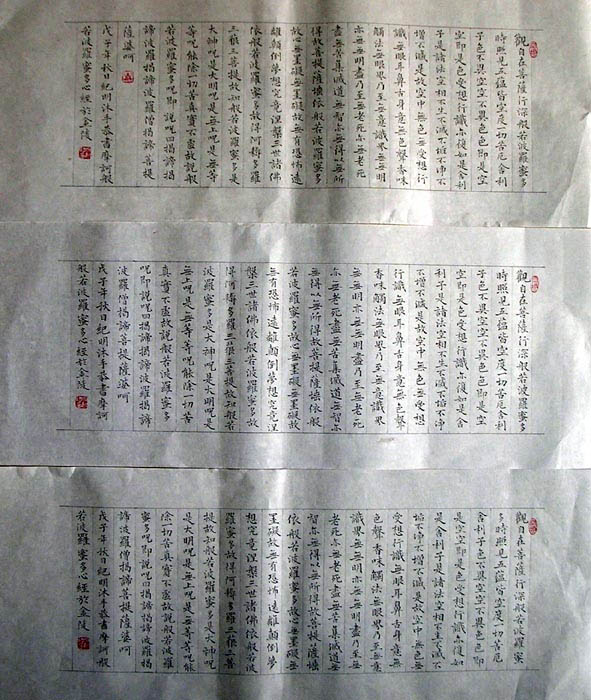 觀自在菩薩行深般若波羅蜜多
時照見五蘊皆空度一切苦厄舍利
子色不異空空不異色色即是空
空即是色受想行識亦復如是舍利
子是諸法空相不生不滅不垢不淨不
增不滅是故空中無色無受想行
識無眼耳鼻舌身意無色聲香味
觸法無眼界乃至無意識界無無明
亦無無明盡乃至無老死亦無老死
盡無苦集滅道無智亦無得以無所
得故菩提薩埵依般若波羅蜜多
故心無罣礙無罣礙故無有恐怖遠
離顛倒夢想究竟涅槃三世諸佛
依般若波羅蜜多故得阿耨多羅
三藐三菩提故知般若波羅蜜多是
大神咒是大明咒是無上咒是無等
等咒能除一切苦真實不虛故說般
若波羅蜜多咒即說咒曰揭諦揭
諦波羅揭諦波羅僧揭諦菩提
薩婆呵
戊子年秋日紀明沐手恭書摩訶般
若波羅蜜多心經於金陵
觀自在菩薩行深般若波羅蜜多
時照見五蘊皆空度一切苦厄舍利
子色不異空空不異色色即是空
空即是色受想行識亦復如是舍
利子是諸法空相不生不滅不垢不淨
不增不滅是故空中無色無受想
行識無眼耳鼻舌身意無色聲
香味觸法無眼界乃至無意識界
無無明亦無無明盡乃至無老死
亦無老死盡無苦集滅道無智亦
無得以無所得故菩提薩埵依般
若波羅蜜多故心無罣礙無罣礙故
無有恐怖遠離顛倒夢想究竟涅
槃三世諸佛依般若波羅蜜多故
得阿耨多羅三藐三菩提故知般若
波羅蜜多是大神咒是大明咒是
無上咒是無等等咒能除一切苦
真實不虛故說般若波羅蜜多
咒即說咒曰揭諦揭諦波羅揭諦
波羅僧揭諦菩提薩婆呵
戊子年秋日紀明沐手恭書摩訶
般若波羅蜜多心經於金陵
觀自在菩薩行深般若波羅蜜
多時照見五蘊皆空度一切苦厄
舍利子色不異空空不異色色即
是空空即是色受想行識亦復如
是舍利子是諸法空相不生不滅不
垢不淨不增不滅是故空中無色無
受想行識無眼耳鼻舌身意無
色聲香味觸法無眼界乃至無意
識界無無明亦無無明盡乃至無
老死亦無老死盡無苦集滅道無
智亦無得以無所得故菩提薩埵
依般若波羅蜜多故心無罣礙無
罣礙故無有恐怖遠離顛倒夢
想究竟涅槃三世諸佛依般若波
羅蜜多故得阿耨多羅三藐三菩
提故知般若波羅蜜多是大神咒
是大明咒是無上咒是無等等咒能
除一切苦真實不虛故說般若波羅
蜜多咒即說咒曰揭諦揭諦波羅揭
諦波羅僧揭諦菩提薩婆呵
戊子年秋日紀明沐手恭書摩訶般
若波羅蜜多心經於金陵